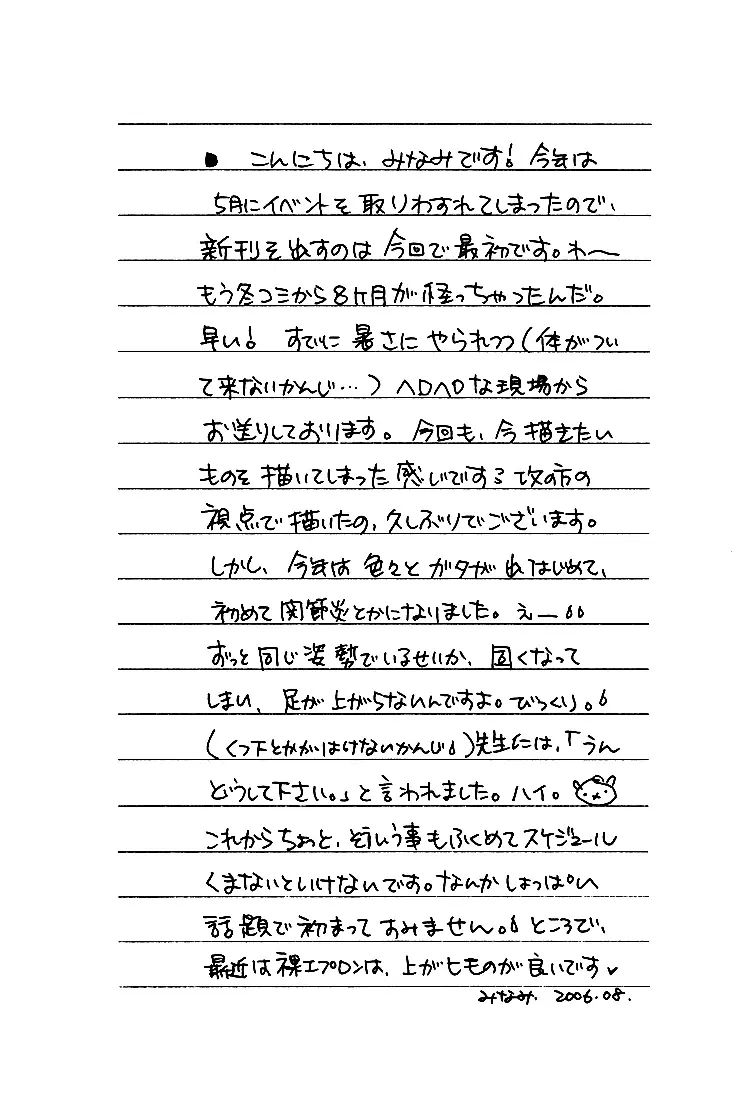 ● こんにちは、みなみです！今年は
5月にイベントを取りわすれてしまったので、
新刊を出すのは今回で最初です。わ〜
もう冬コミから8ヶ月が経っちゃったんだ。
早い！ すでに暑さにやられつつ（体がつい
て来ないかんじ…）ヘロヘロな現場から
お送りしております。今回も、今描きたい
ものを描いてしまった感じでする攻の方の
視点で描いたの、久しぶりでございます。
しかし、今年は色々とガタが出はじめて、
初めて関節炎とかになりました。えー
ずっと同じ姿勢でいるせいか、固くなって
しまい、足が上がらないんですよ。びっくり。
（くつ下とかがはけないかんじ）先生には、「うん
どうして下さい。」と言われました。ハイ。
これからちょっと、そういう事もふくめてスケジュール
くまないといけないです。なんかしょっぱい
話題で初まってすみません。ところで、
最近は裸エプロンは、上が七ものが良いです♥
みなみ. 2006.08.